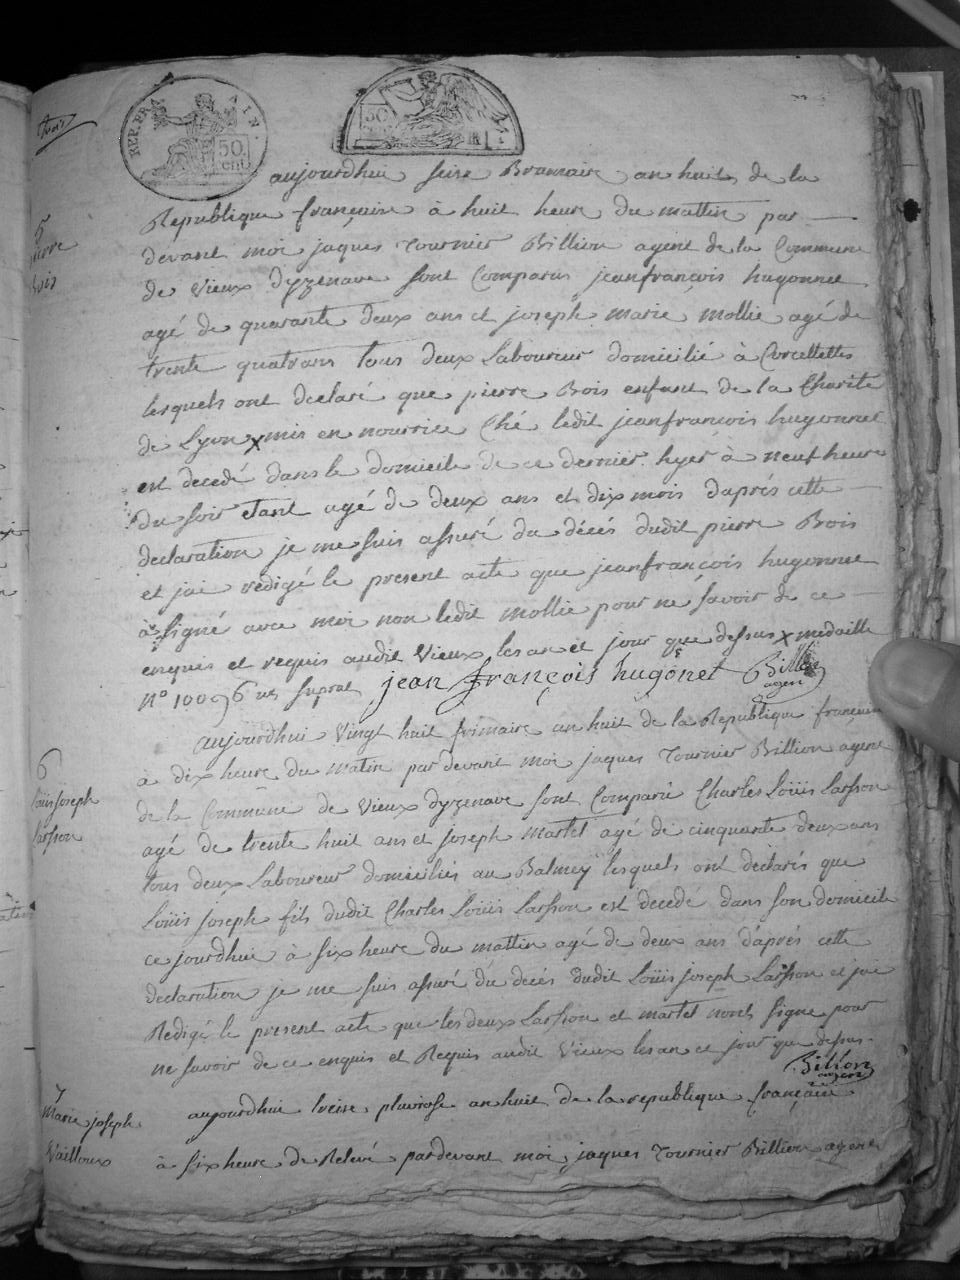 REP. FRA. AIN
50 cent
50
trois
5
pierre
Bois
aujourdhui seise Brumaire an huit de la
Republique françaisse à huit heure du mattin par
devant moi jaques Tournier Billion agent de la Commune
de Vieux dyzenave sont Comparus jeanfrançois hugonnet
agé de quarante deux ans et joseph marie mollie agé de
trente quatrans tous deux Laboureur domicilié à Corcellettes
lesquels ont declaré que pierre Bois enfant de la Charité
de Lyon x mis en nourrice Ché ledit jeanfrançois hugonnet
est decedé dans le domicile de ce dernier hyer à neuf heure
du soir etant agé de deux ans et dix mois d'aprés cette
declaration je me suis assuré du décés dudit pierre Bois
et jai redigé le present acte que jeanfrançois hugonnet
a signé avec moi non ledit mollie pour ne savoir de ce
enquis et requis audit Vieux les an et jour que dessus x medaille
n° 10096 ut supra jean françois hugonet Billion
agent
6
Loüis joseph
Larsson
aujourdhui Vingt huit frimaire an huit de la Republique française
à dix heure du matin pardevant moi jaques Tournier Billion agent
de la Commune de Vieux dyzenave sont Comparu Charles Loüis Larsson
agé de trente huit ans et joseph Martel agé de cinquante deux ans
tous deux Laboureur domiciliés au Balmey lesquels ont declarés que
Loüis joseph fils dudit Charles Loüis Larsson est decedé dans son domicile
ce jourdhui à six heure du mattin agé de deux ans d'aprés cette
declaration je me suis assuré du decés dudit Loüis joseph Larsson et jai
Redigé le present acte que les deux Larsson et martel nonts signe pour
ne savoir de ce enquis et Requis audit Vieux les an et jour que dessus.
Billion
agent
7
Marie joseph
Vailloux
aujourdhui treise pluviose an huit de la republique française
à six heure de Relevé pardevant moi jaques Tournier Billion agent